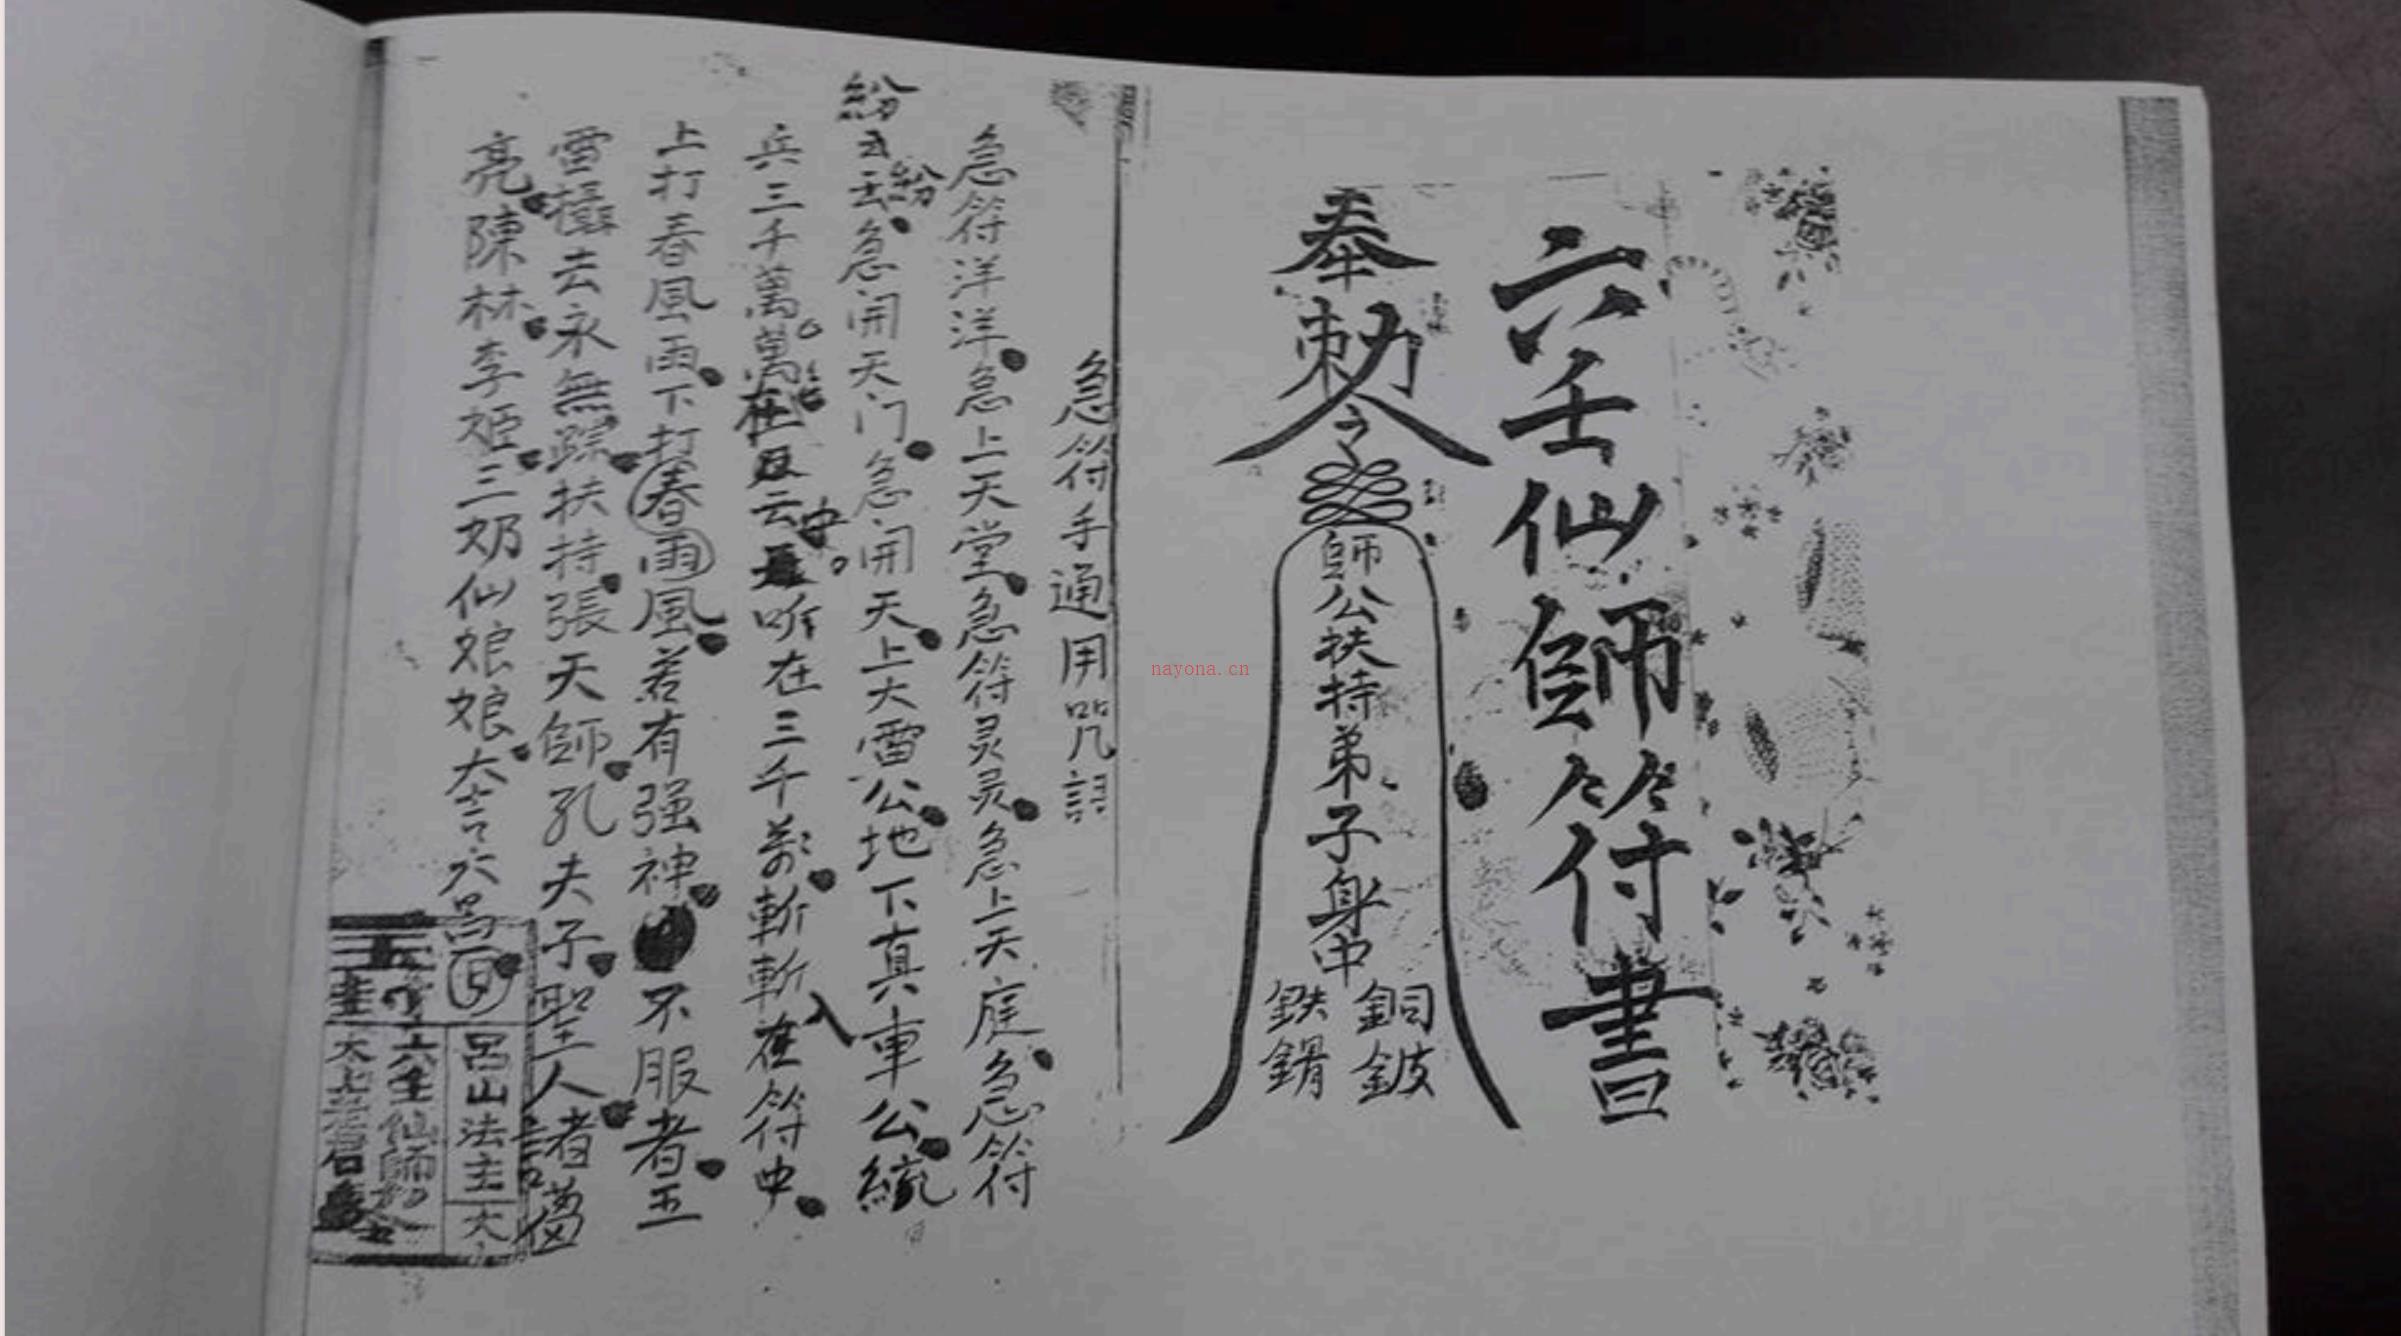 六壬仙師符書
奉勅令
師公扶持弟子身中
銅鈹
鉄鎖
急符手通用咒語
急符洋洋急上天堂急符灵灵急上天庭急符
紛紛
急開天门急開天上大雷公地下真車公統
兵三千萬萬
在三千萬斬斬在符中
入
上打春風雨下打春雨風若有强神不服者五
雷攝去永無踪扶持張天師孔夫子聖人者
亮陳林李姫三奶仙娘娘
呂山法主大
六壬仙師
太上老君
nayona.cn